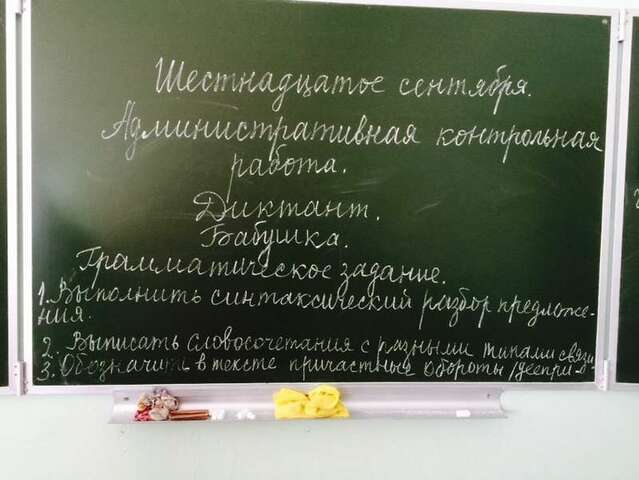 Шестнадцатое сентября.
Административная контрольная
работа.
Диктант.
Бабушка.
Грамматическое задание.
1. Выполнить синтаксический разбор предложе-
ния.
2. Выписать словосочетания с разными типами связи
3. Обозначить в тексте причастные обороты /деепри